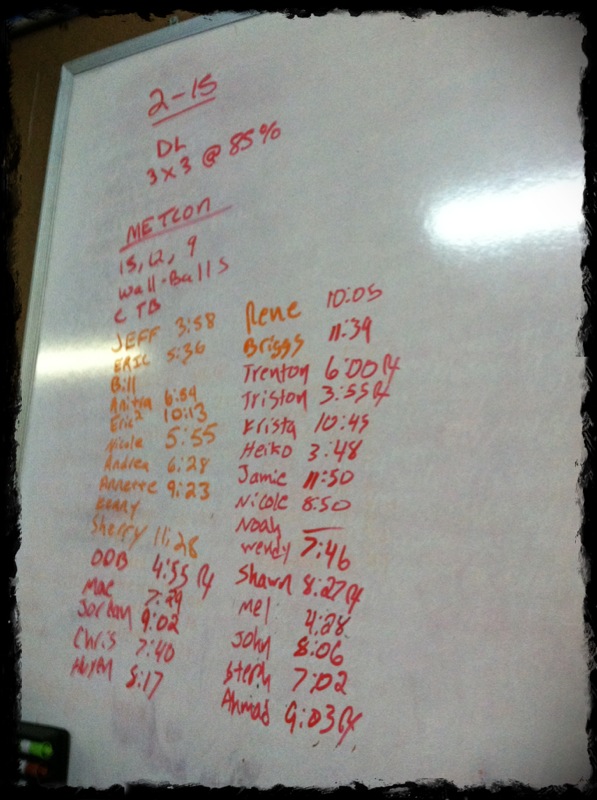 2-15
DL
3x3 @ 85%
METCON
15, 12, 9
Wall-Balls
CTB
JEFF 3:58
ERIC 5:36
Bill
Anitra 6:54
Eric² 10:13
Nicole 5:55
Andrea 6:28
Annette 9:23
Kenny
Sherry 11:28
DOB 4:55 Rx
Mac 7:29
Jordan 9:02
Chris 7:40
8:17
Rene 10:05
Briggs 11:39
Trenton 6:00 Rx
Triston 3:55 Rx
Krista 10:45
Heiko 3:48
Jamie 11:50
Nicole 8:50
Noah —
Wendy 7:46
Shawn 8:27 Rx
Mel 4:28
John 8:06
Steph 7:02
Ahmad 9:03 Rx